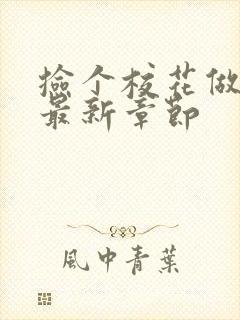 撿个校花做
最新章節
風中青葉